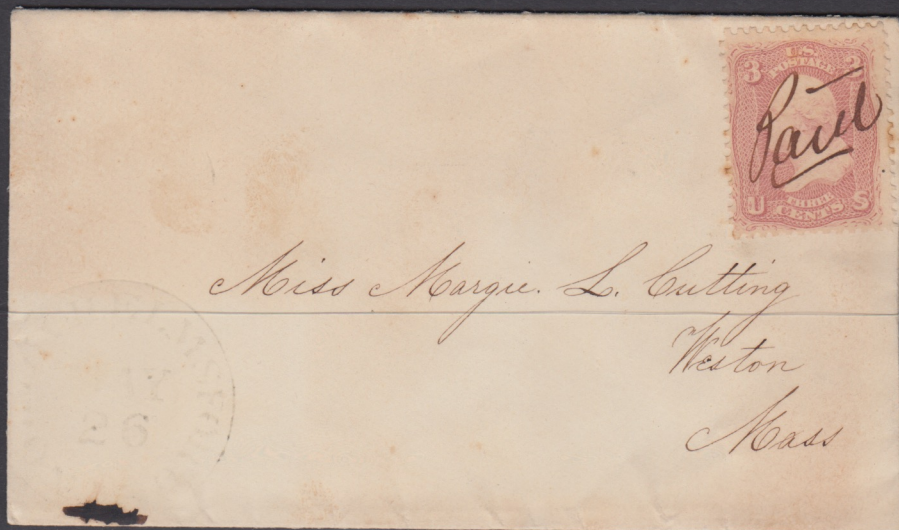 U.S.
POSTAGE
3 3
Paid
THREE
CENTS
U S
Miss Margie. L. Cutting
Weston
Mass
26